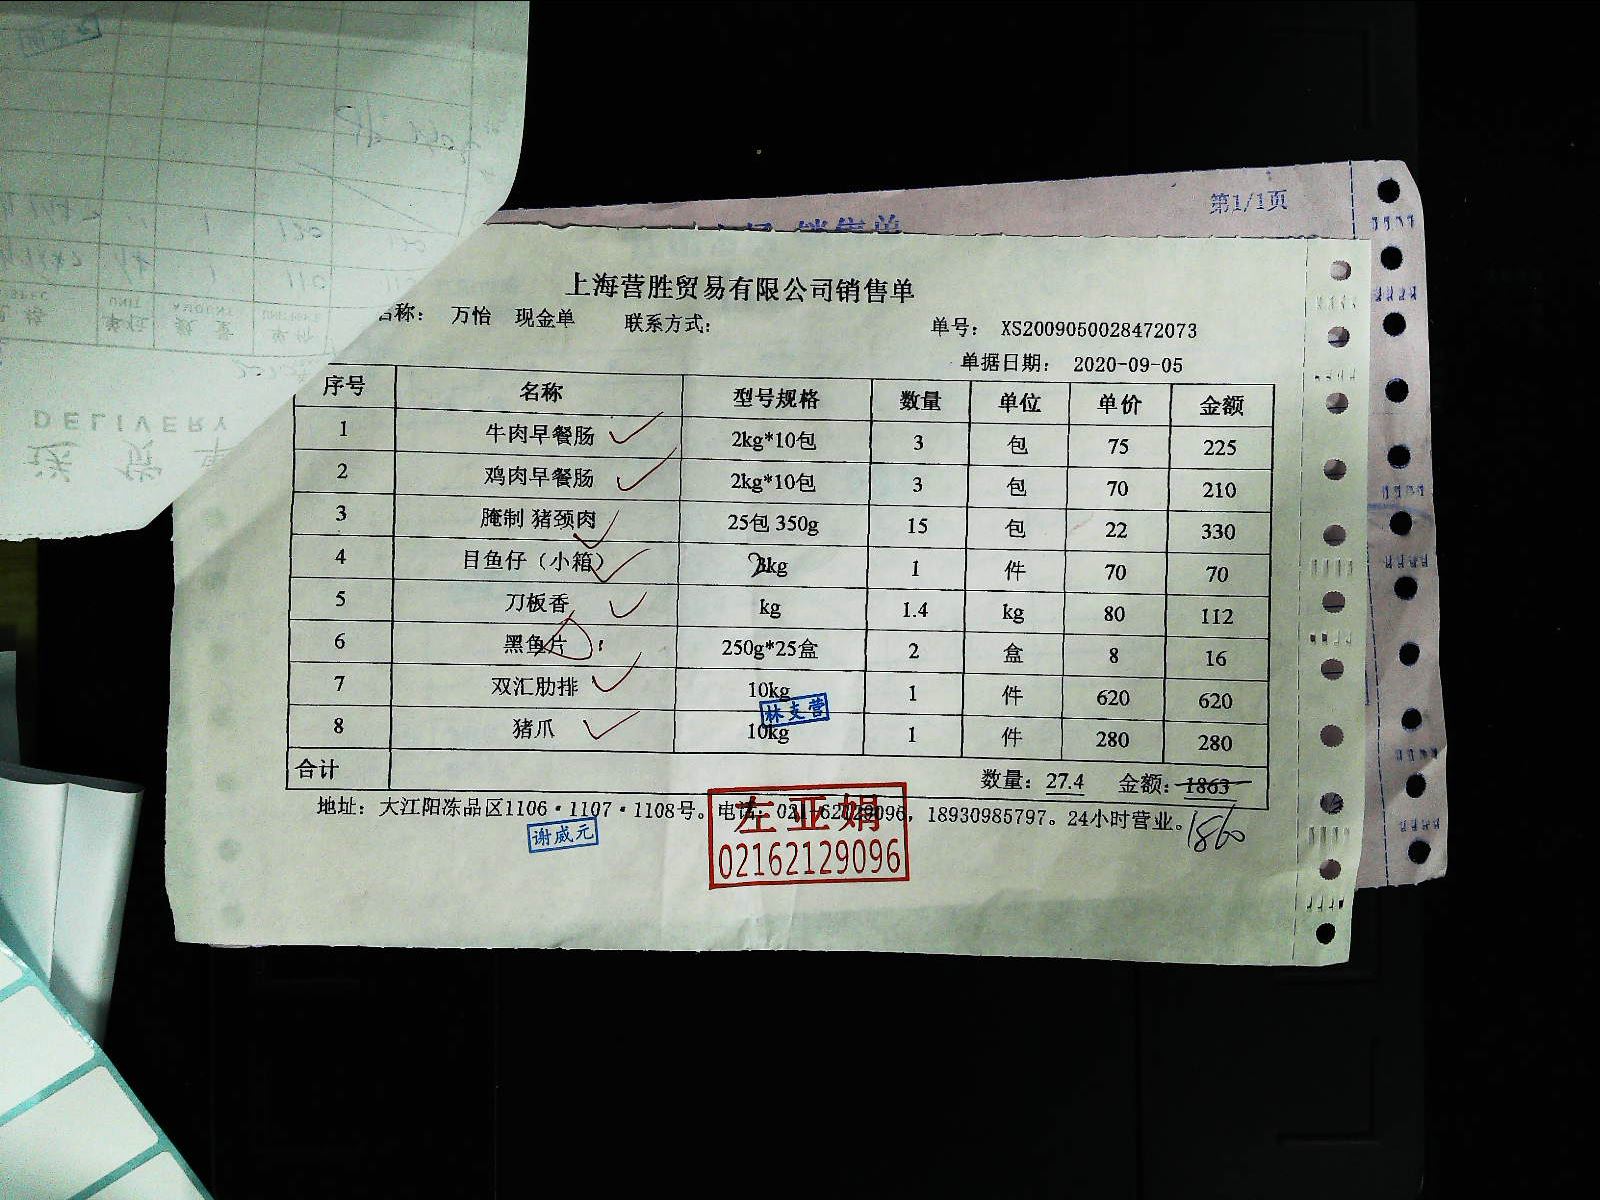 第1/1页
销售单
上海营胜贸易有限公司销售单
名称： 万怡 现金单 联系方式： 单号： XS2009050028472073
单据日期： 2020-09-05
序号 名称 型号规格 数量 单位 单价 金额
1 牛肉早餐肠 2kg*10包 3 包 75 225
2 鸡肉早餐肠 2kg*10包 3 包 70 210
3 腌制 猪颈肉 25包 350g 15 包 22 330
4 目鱼仔（小箱） kg 1 件 70 70
5 刀板香 kg 1.4 kg 80 112
6 黑鱼片 250g*25盒 2 盒 8 16
7 双汇肋排 10kg 1 件 620 620
8 猪爪 10kg 1 件 280 280
林支营
合计 数量：27.4 金额：1863
1860
地址：大江阳冻品区1106·1107·1108号。电话：021-62129096，18930985797。24小时营业。
谢威元
左亚娟
02162129096
送货单
DELIVERY